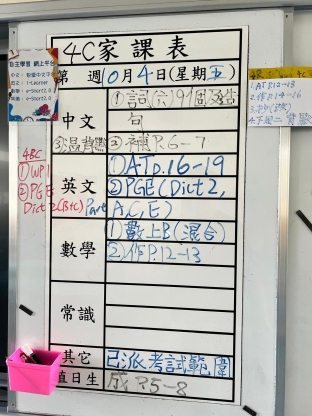 自主學習 網上平台
4C家課表
第 週10月4日(星期五)
中文
①詞(六)19個及造句
③溫背默
②補P.6-7
英文
①ATp.16-19
②PGE(Dict 2, Part A,C,E)
4BC
①WP1
②PGE Dict 2(B+c)
數學
①數上B(混合)
②作P.12-13
常識
其它
已派考試範圍
值日生
成P.5-8
1.ATP.12-13
2.作P.14-16